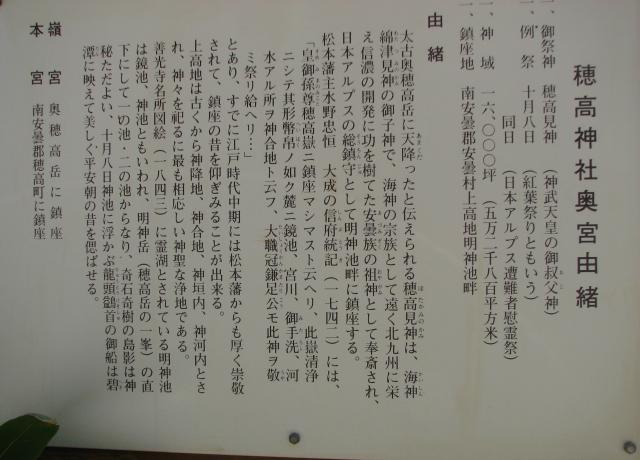 穂高神社奥宮由緒
一、御祭神 穂高見神(神武天皇の御叔父神)
一、例祭 十月八日(紅葉祭りともいう)
同日(日本アルプス遭難者慰霊祭)
一、神域 一六、〇〇〇坪(五万二千八百平方米)
一、鎮座地 南安曇郡安曇村上高地明神池畔
由緒
太古奥穂高岳に天降ったと伝えられる穂高見神は、海神
綿津見神の御子神で、海神の宗族として遠く北九州に栄
え信濃の開発に功を樹てた安曇族の祖神として奉斎され、
日本アルプスの総鎮守として明神池畔に鎮座する。
松本藩主水野忠恒 大成の信府統記(一七四二)には、
「皇御孫尊穂高嶽ニ鎮座マシマスト云ヘリ、此嶽清浄
ニシテ其形幣帛ノ如ク麓ニ鏡池、宮川、御手洗、河
水アル所ヲ神合地ト云フ、大職冠鎌足公モ此神ヲ敬
ミ祭リ給ヘリ…」
とあり、すでに江戸時代中期には松本藩からも厚く崇敬
されて、鎮座の昔を仰ぎみることが出来る。
上高地は古くから神降地、神合地、神垣内、神河内とさ
れ、神々を祀るに最も相応しい神聖な浄地である。
善光寺名所図絵(一八四三)に霊湖とされている明神池
は鏡池、神池ともいわれ、明神岳(穂高岳の一峯)の直
下にして一の池・二の池からなり、奇石奇樹の島影は神
秘ただよい、十月八日神池に浮かぶ龍頭鷁首の御船は碧
潭に映えて美しく平安朝の昔を偲ばせる。
嶺宮 奥穂高岳に鎮座
本宮 南安曇郡穂高町に鎮座